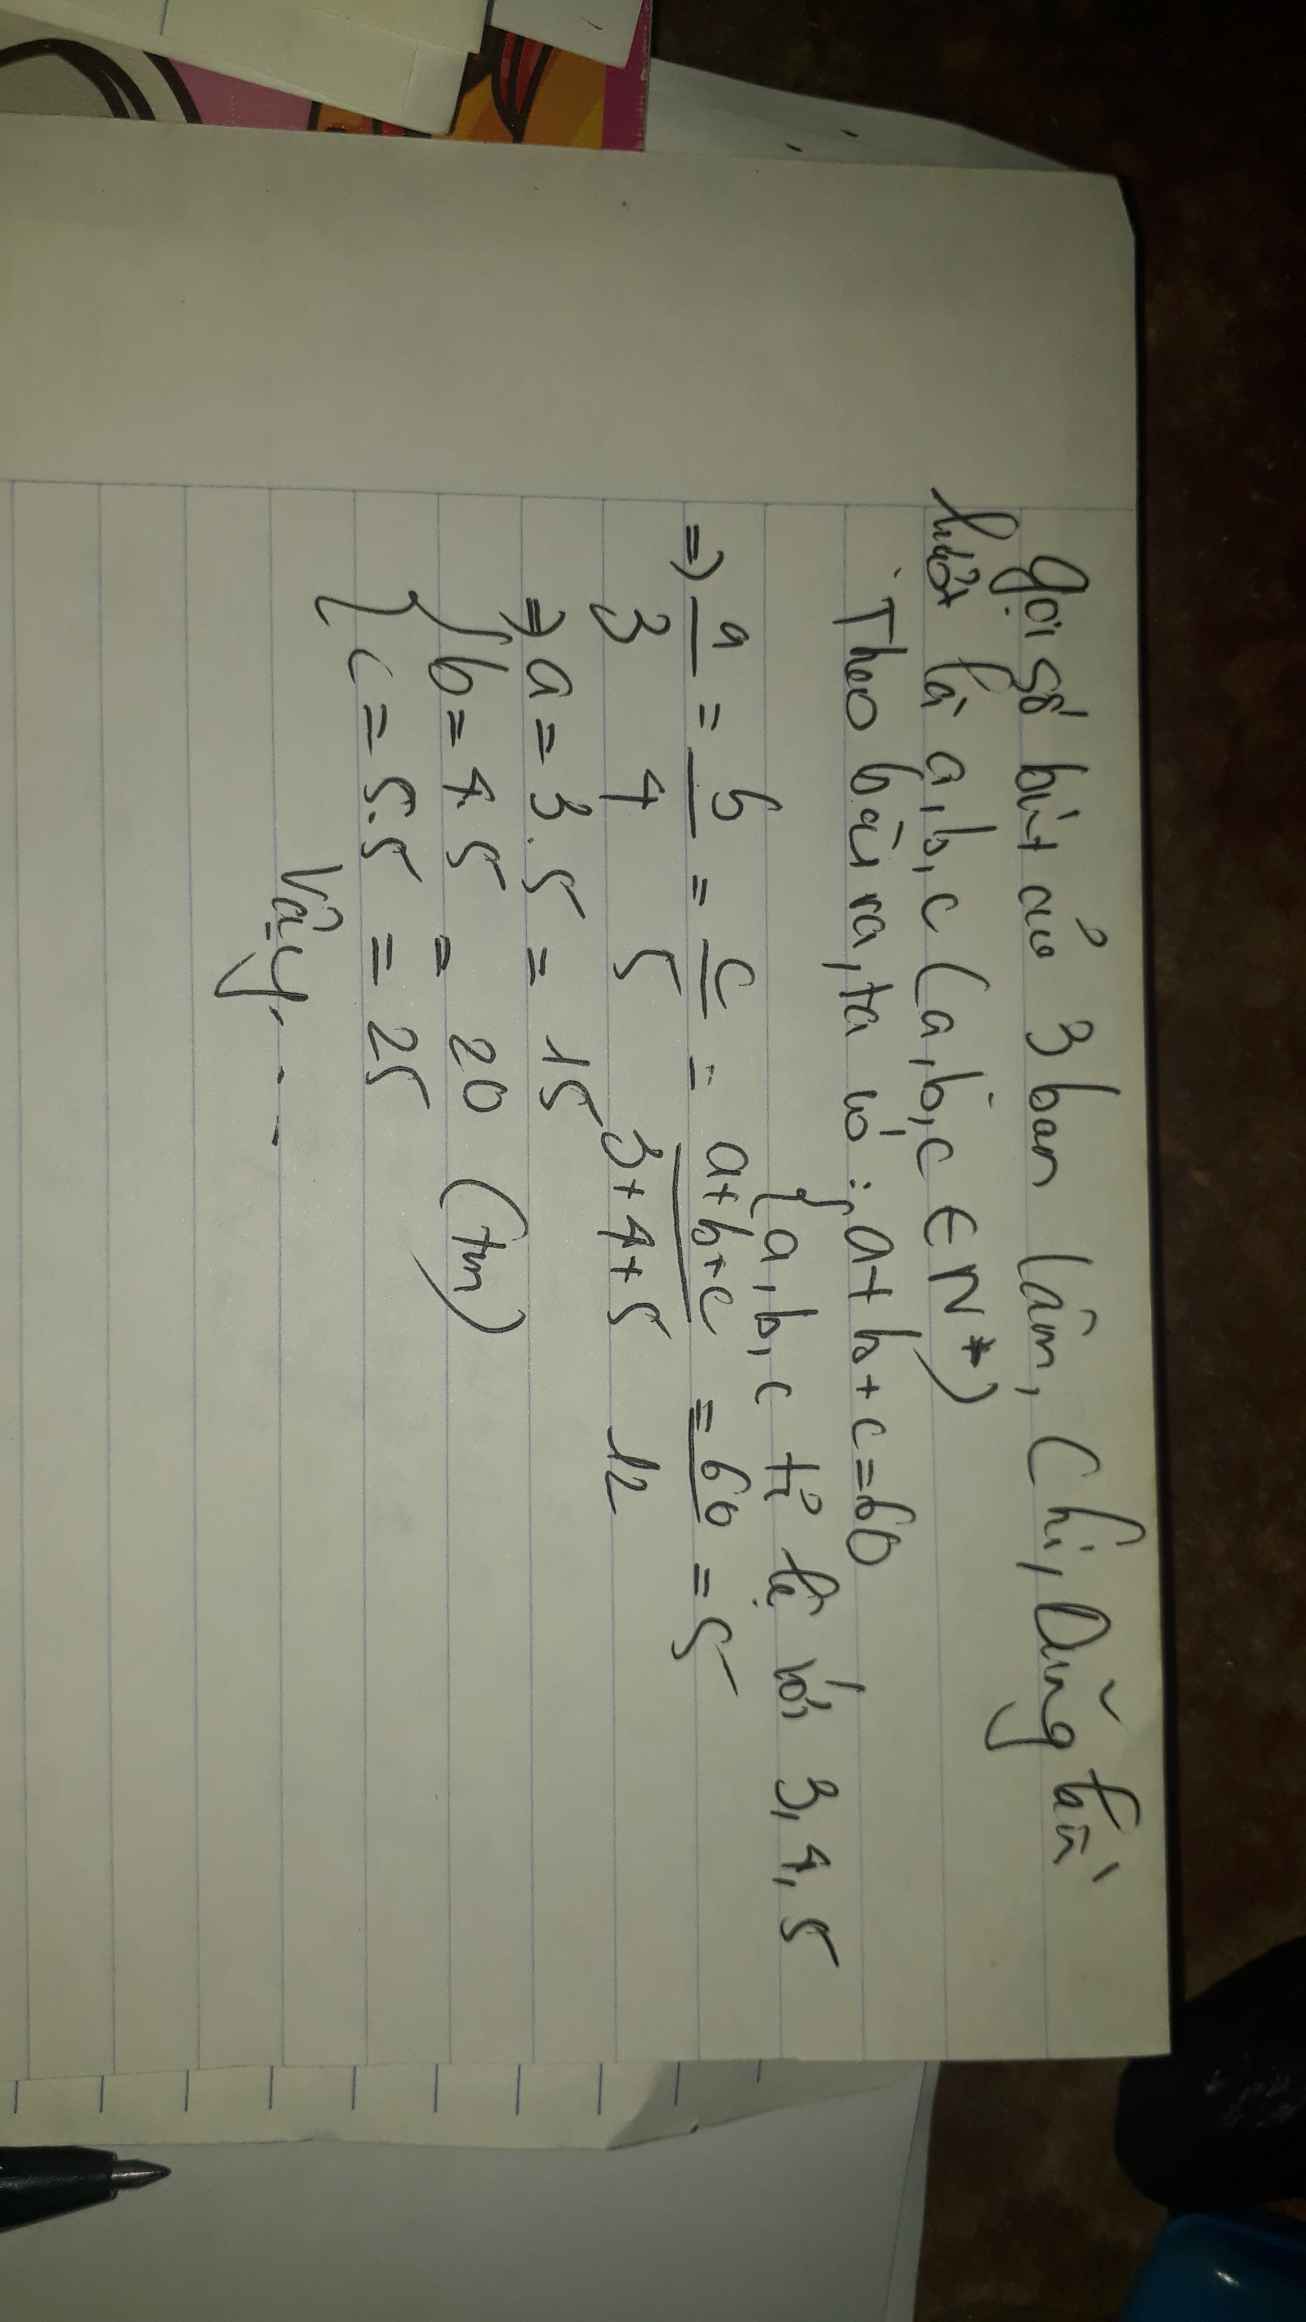 Gọi số bút củả 3 bạn Lâm, Chi, Dũng lần
lượt là a, b, c (a, b, c ∈ N*)
Theo bài ra, ta có : { a + b + c = 60
a, b, c tỉ lệ với 3, 4, 5
=> a/3 = b/4 = c/5 = a+b+c/3+4+5 = 60/12 = 5
=> { a = 3.5 = 15
b = 4.5 = 20 (tm)
c = 5.5 = 25
Vậy....